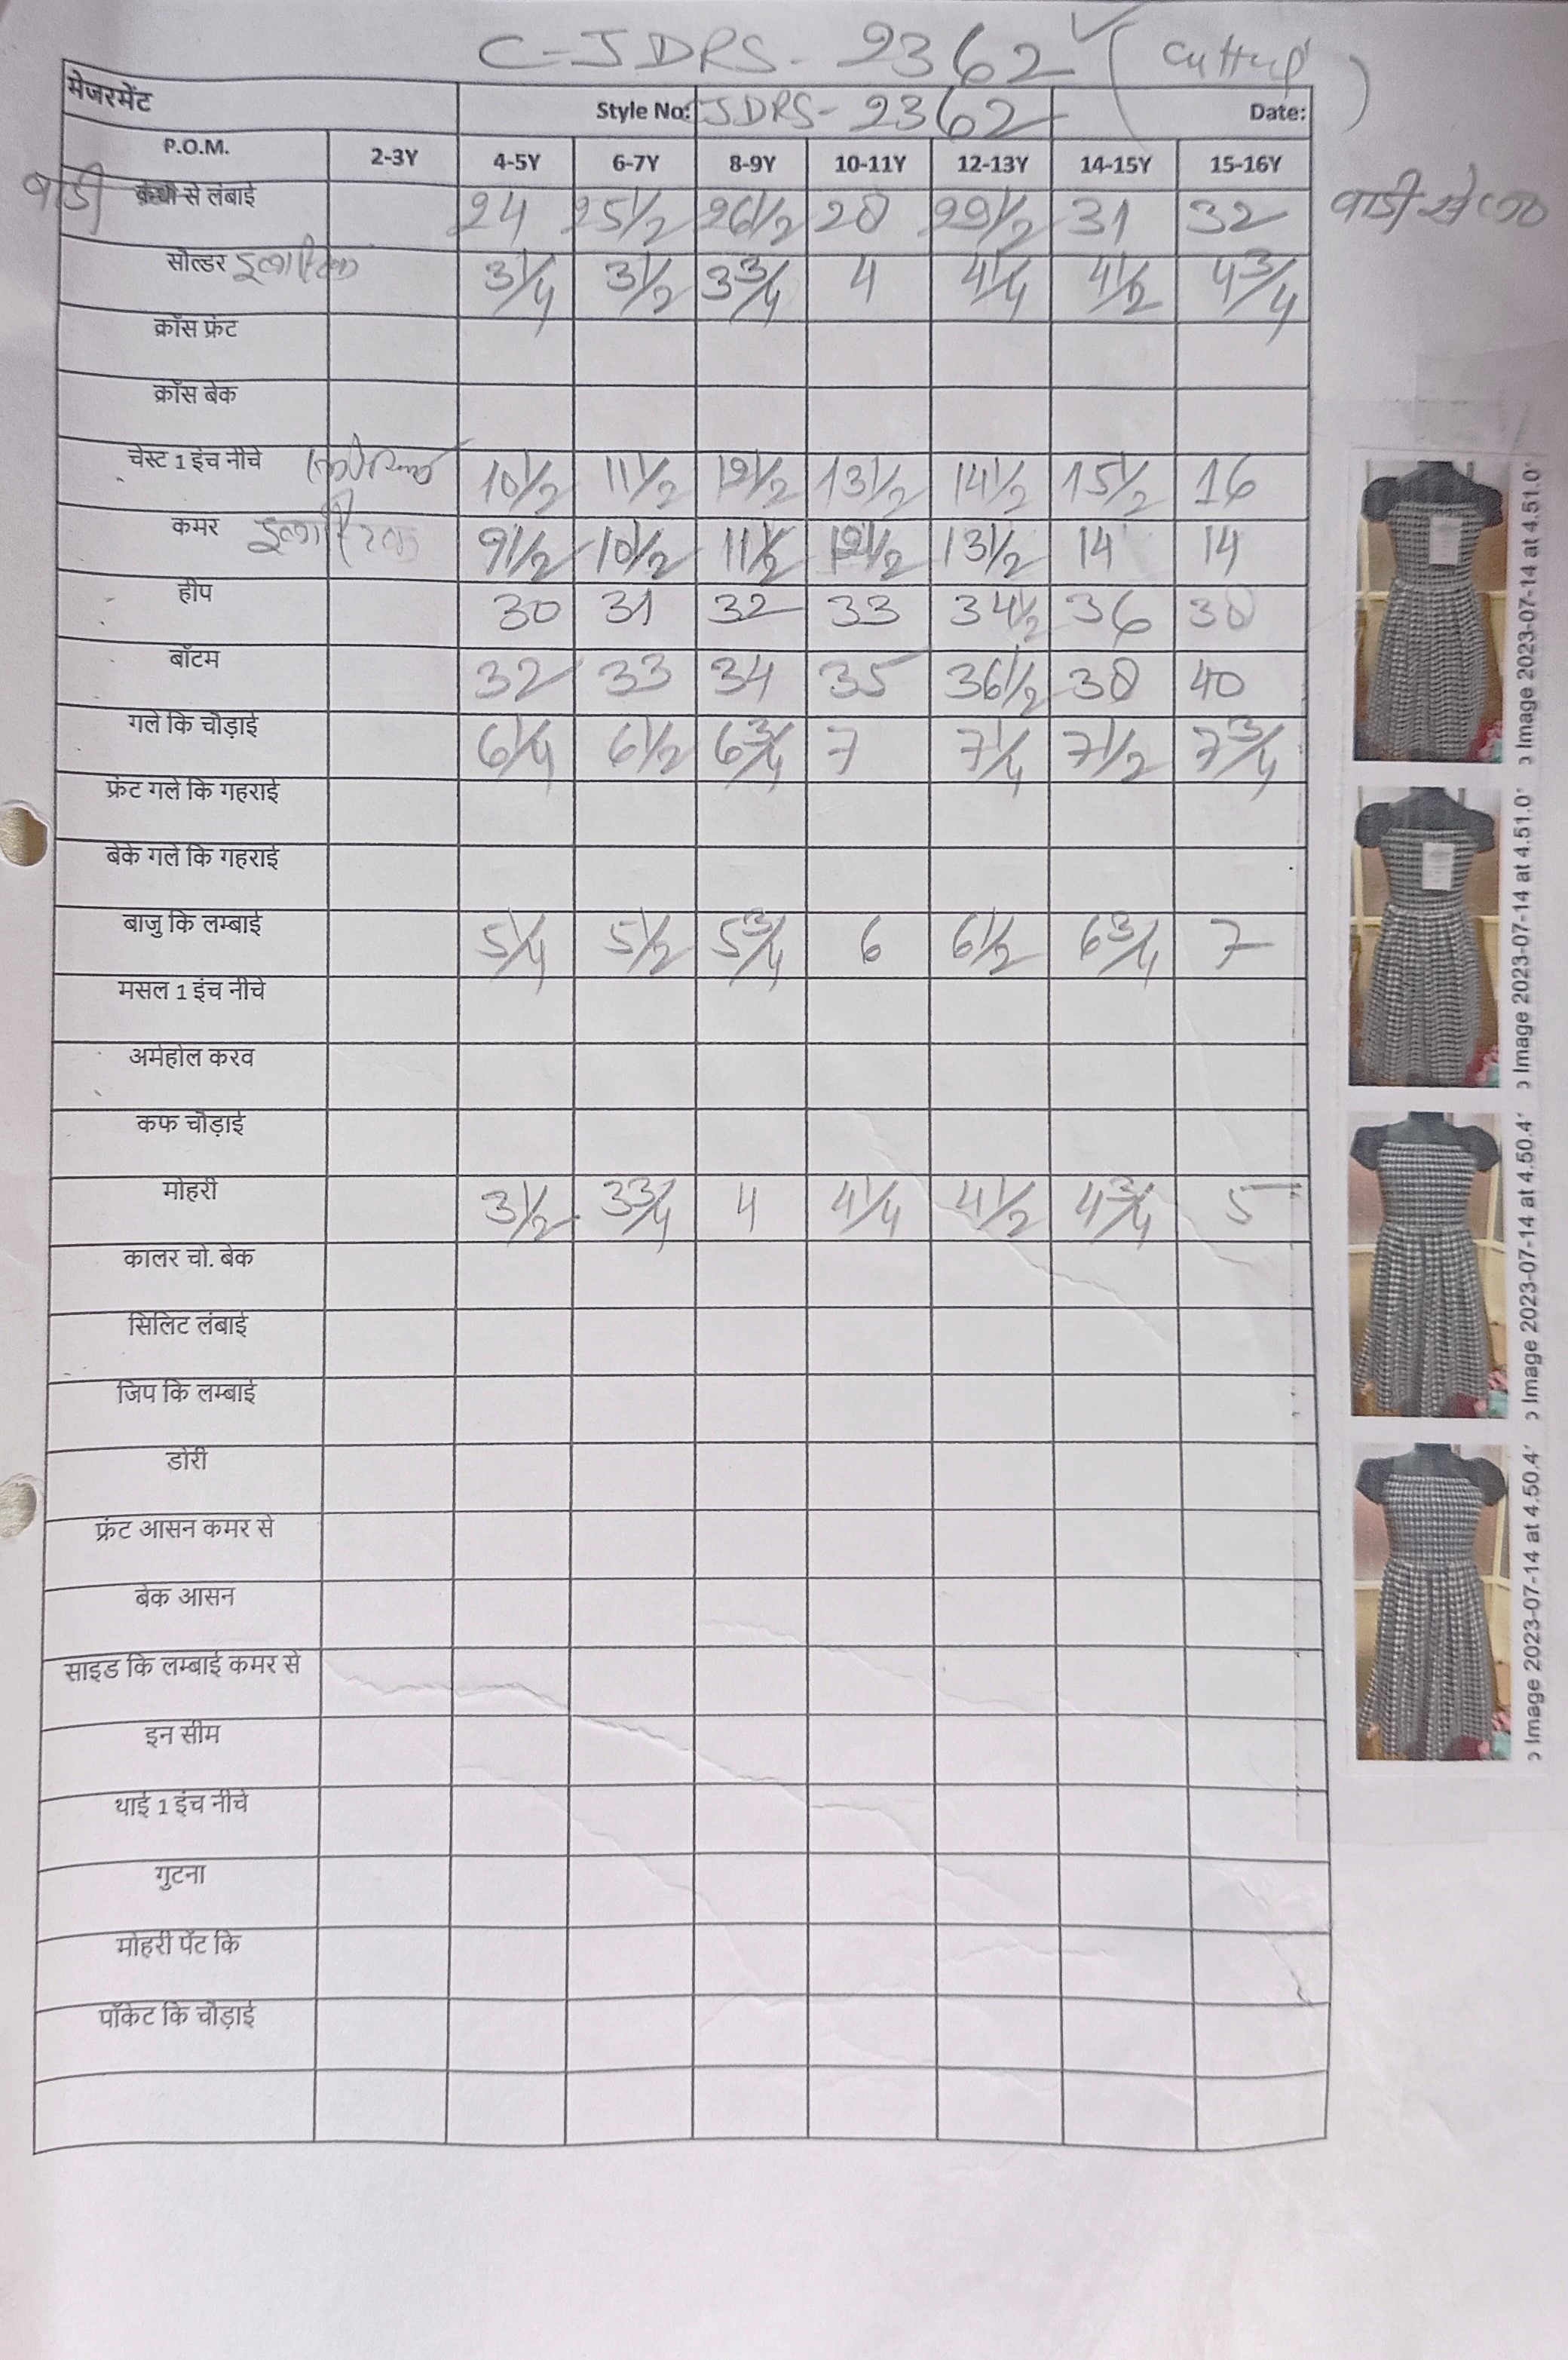 C-JDRS- 2362 (Cutting)
मेजरमेंट Style No: JDRS-2362 Date:
P.O.M. 2-3Y 4-5Y 6-7Y 8-9Y 10-11Y 12-13Y 14-15Y 15-16Y
बाडी कंधी से लंबाई 24 25 1/2 26 1/2 28 29 1/2 31 32 बाडी से
सोल्डर इलास्टिक 3 1/4 3 1/2 3 3/4 4 4 1/4 4 1/2 4 3/4
क्रॉस फ्रंट
क्रॉस बेक
चेस्ट 1 इंच नीचे 10 1/2 11 1/2 12 1/2 13 1/2 14 1/2 15 1/2 16
कमर इलास्टिक 9 1/2 10 1/2 11 1/2 12 1/2 13 1/2 14 14
हीप 30 31 32 33 34 1/2 36 38
बॉटम 32 33 34 35 36 1/2 38 40
गले कि चौड़ाई 6 1/4 6 1/2 6 3/4 7 7 1/4 7 1/2 7 3/4
फ्रंट गले कि गहराई
बेके गले कि गहराई
बाजु कि लम्बाई 5 1/4 5 1/2 5 3/4 6 6 1/2 6 3/4 7
मसल 1 इंच नीचे
अर्महोल करव
कफ चौड़ाई
मोहरी 3 1/2 3 3/4 4 4 1/4 4 1/2 4 3/4 5
कालर चो. बेक
सिलिट लंबाई
जिप कि लम्बाई
डोरी
फ्रंट आसन कमर से
बेक आसन
साइड कि लम्बाई कमर से
इन सीम
थाई 1 इंच नीचे
गुटना
मोहरी पेंट कि
पॉकेट कि चौड़ाई
Image 2023-07-14 at 4.51.0
Image 2023-07-14 at 4.51.0
Image 2023-07-14 at 4.50.4
Image 2023-07-14 at 4.50.4